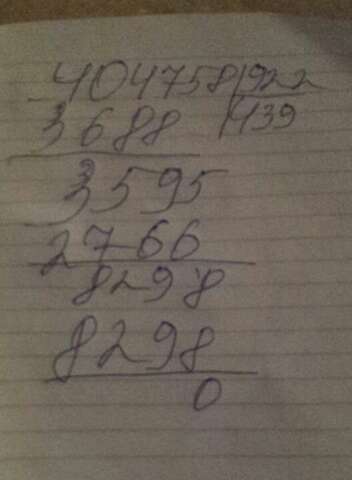 404758|922
3688 |439
3595
2766
8298
8298
0